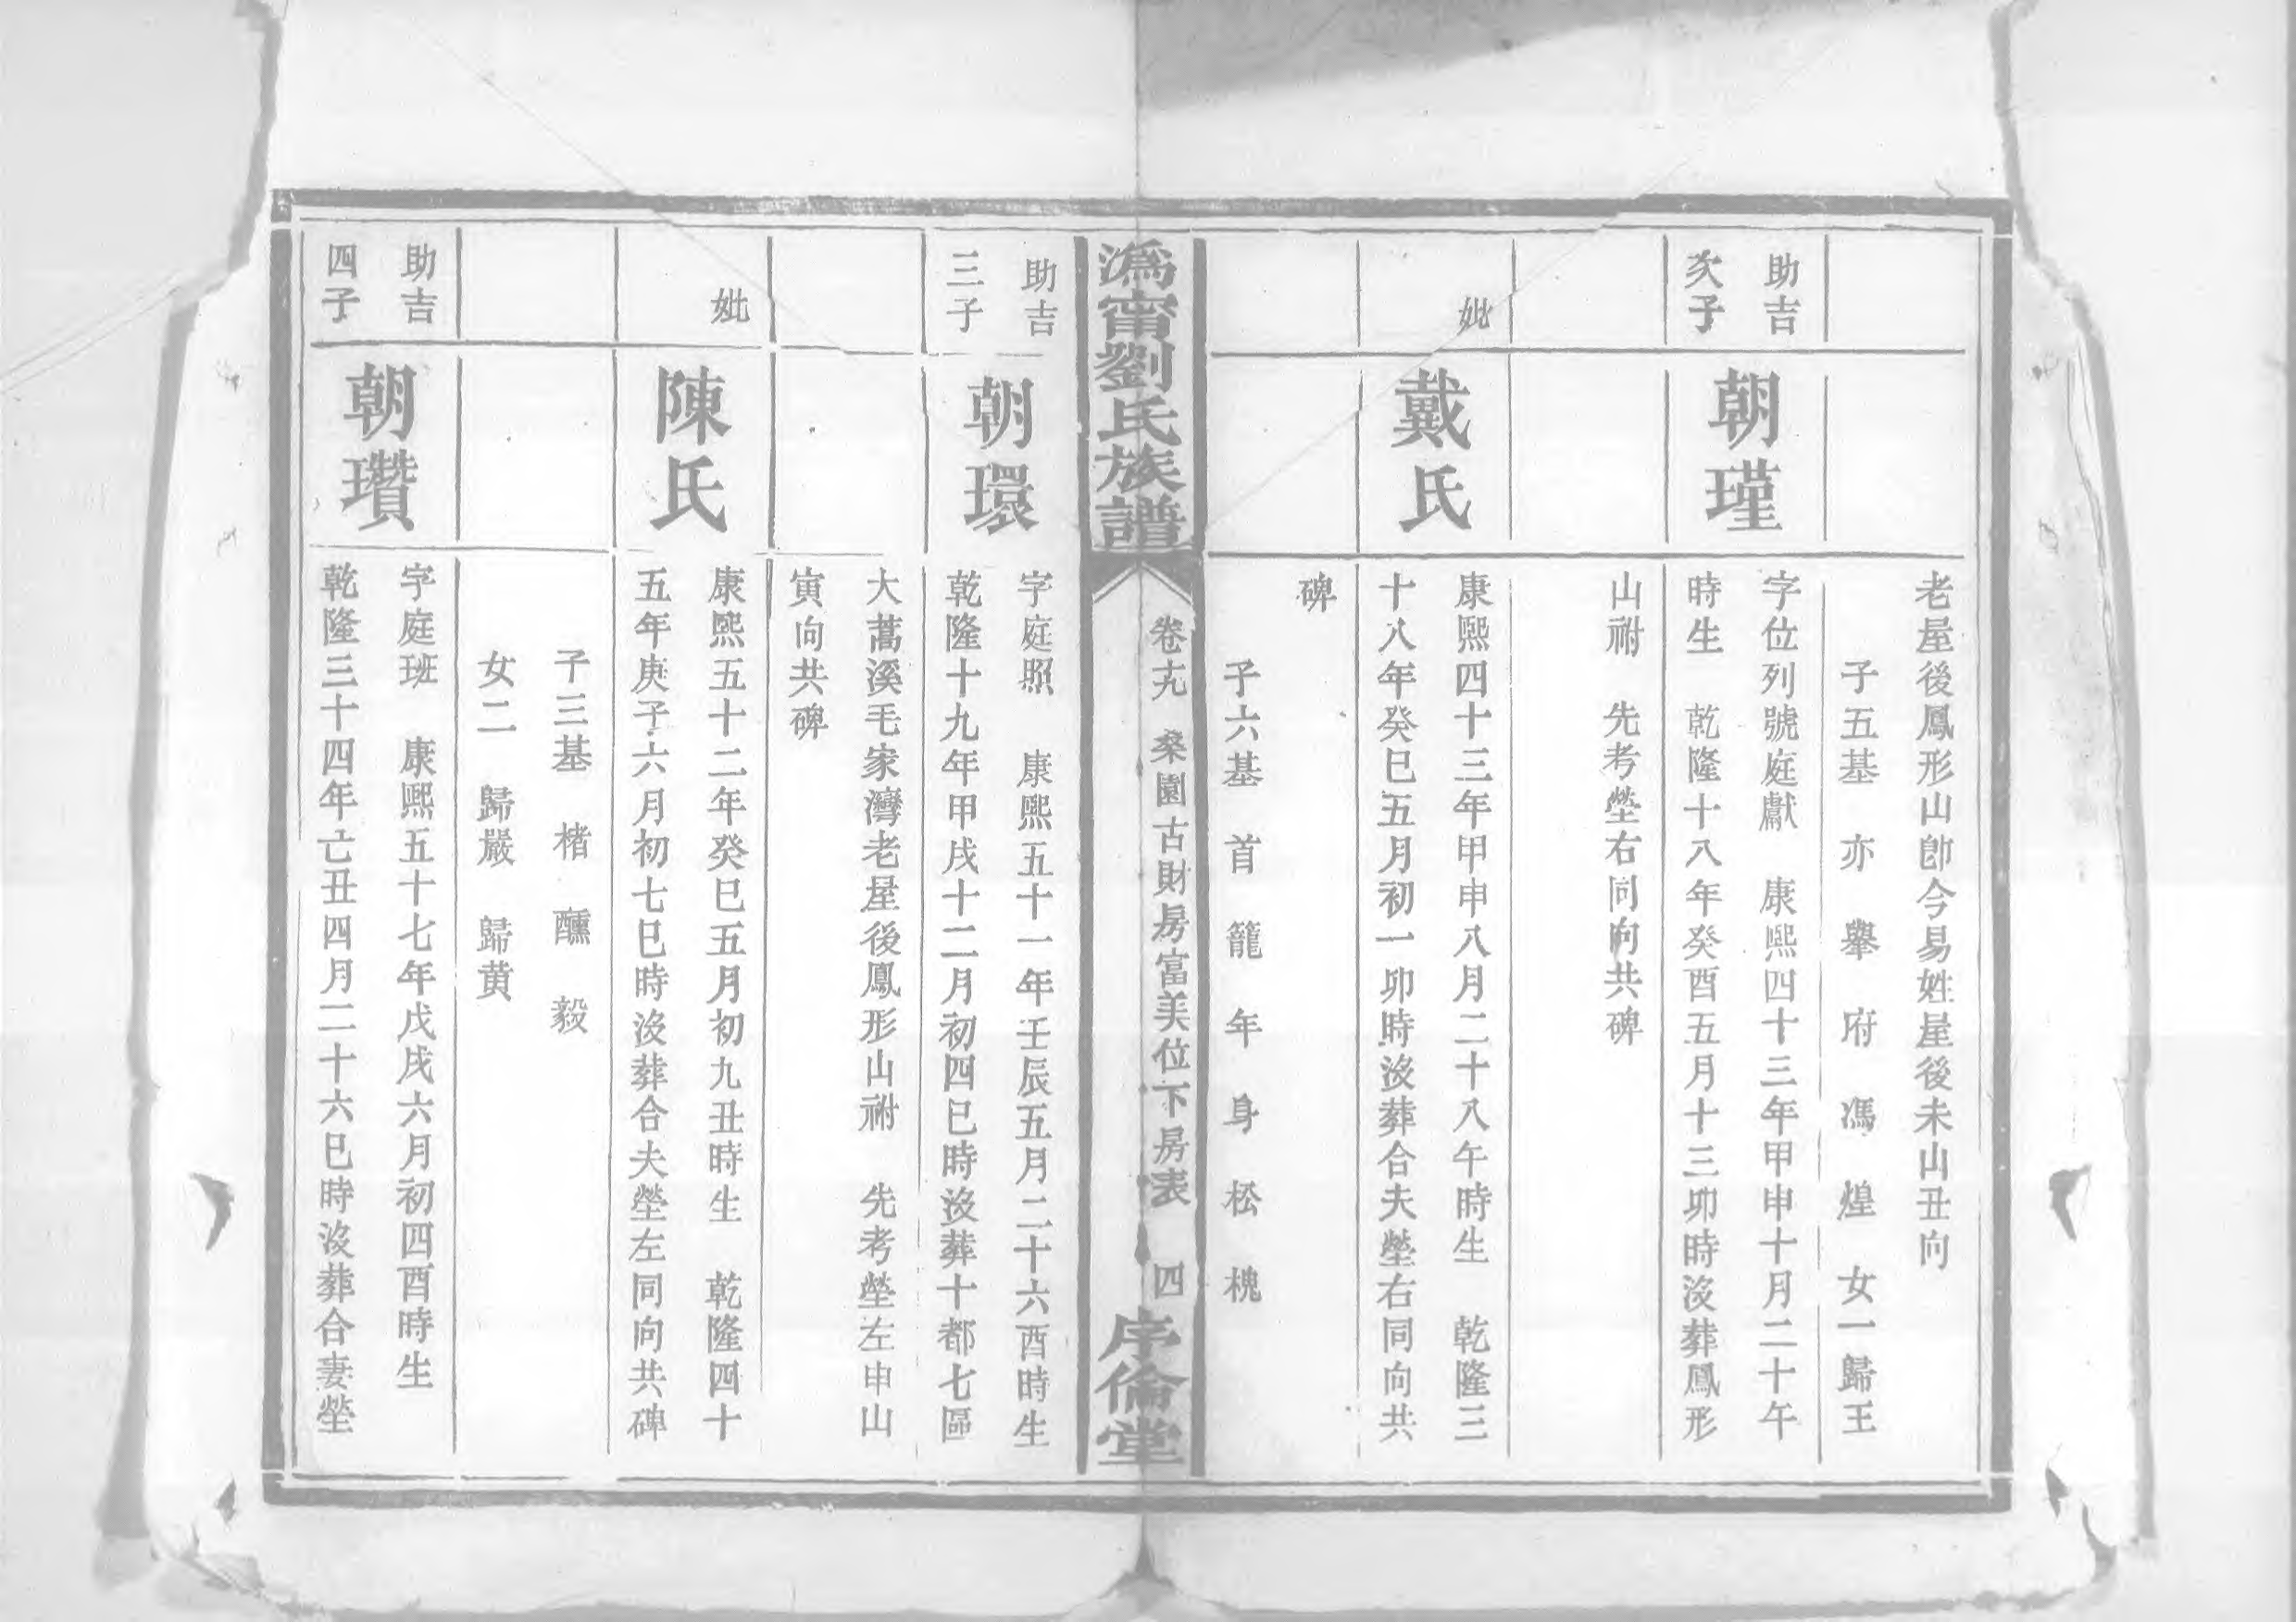 老屋後鳳形山卽今易姓屋後未山丑向
子五基 亦 舉 府 馮 煌 女一歸王
助吉
次子
朝瑾
字位列號庭獻 康熙四十三年甲申十月二十午
時生 乾隆十八年癸酉五月十三卯時沒葬鳳形
山祔 先考塋右同向共碑
妣
戴氏
康熙四十三年甲申八月二十八午時生 乾隆三
十八年癸巳五月初一卯時沒葬合夫塋右同向共
碑
子六基 首 籠 年 身 松 槐
潙甯劉氏族譜
卷十九 桑園古財房富美位下房表 四
序倫堂
助吉
三子
朝環
字庭照 康熙五十一年壬辰五月二十六酉時生
乾隆十九年甲戌十二月初四巳時沒葬十都七區
大蒿溪毛家灣老屋後鳳形山祔 先考塋左申山
寅向共碑
妣
陳氏
康熙五十二年癸巳五月初九丑時生 乾隆四十
五年庚子六月初七巳時沒葬合夫塋左同向共碑
子三基 楮 醺 毅
女二 歸嚴 歸黃
助吉
四子
朝瓚
字庭班 康熙五十七年戊戌六月初四酉時生
乾隆三十四年亡丑四月二十六巳時沒葬合妻塋